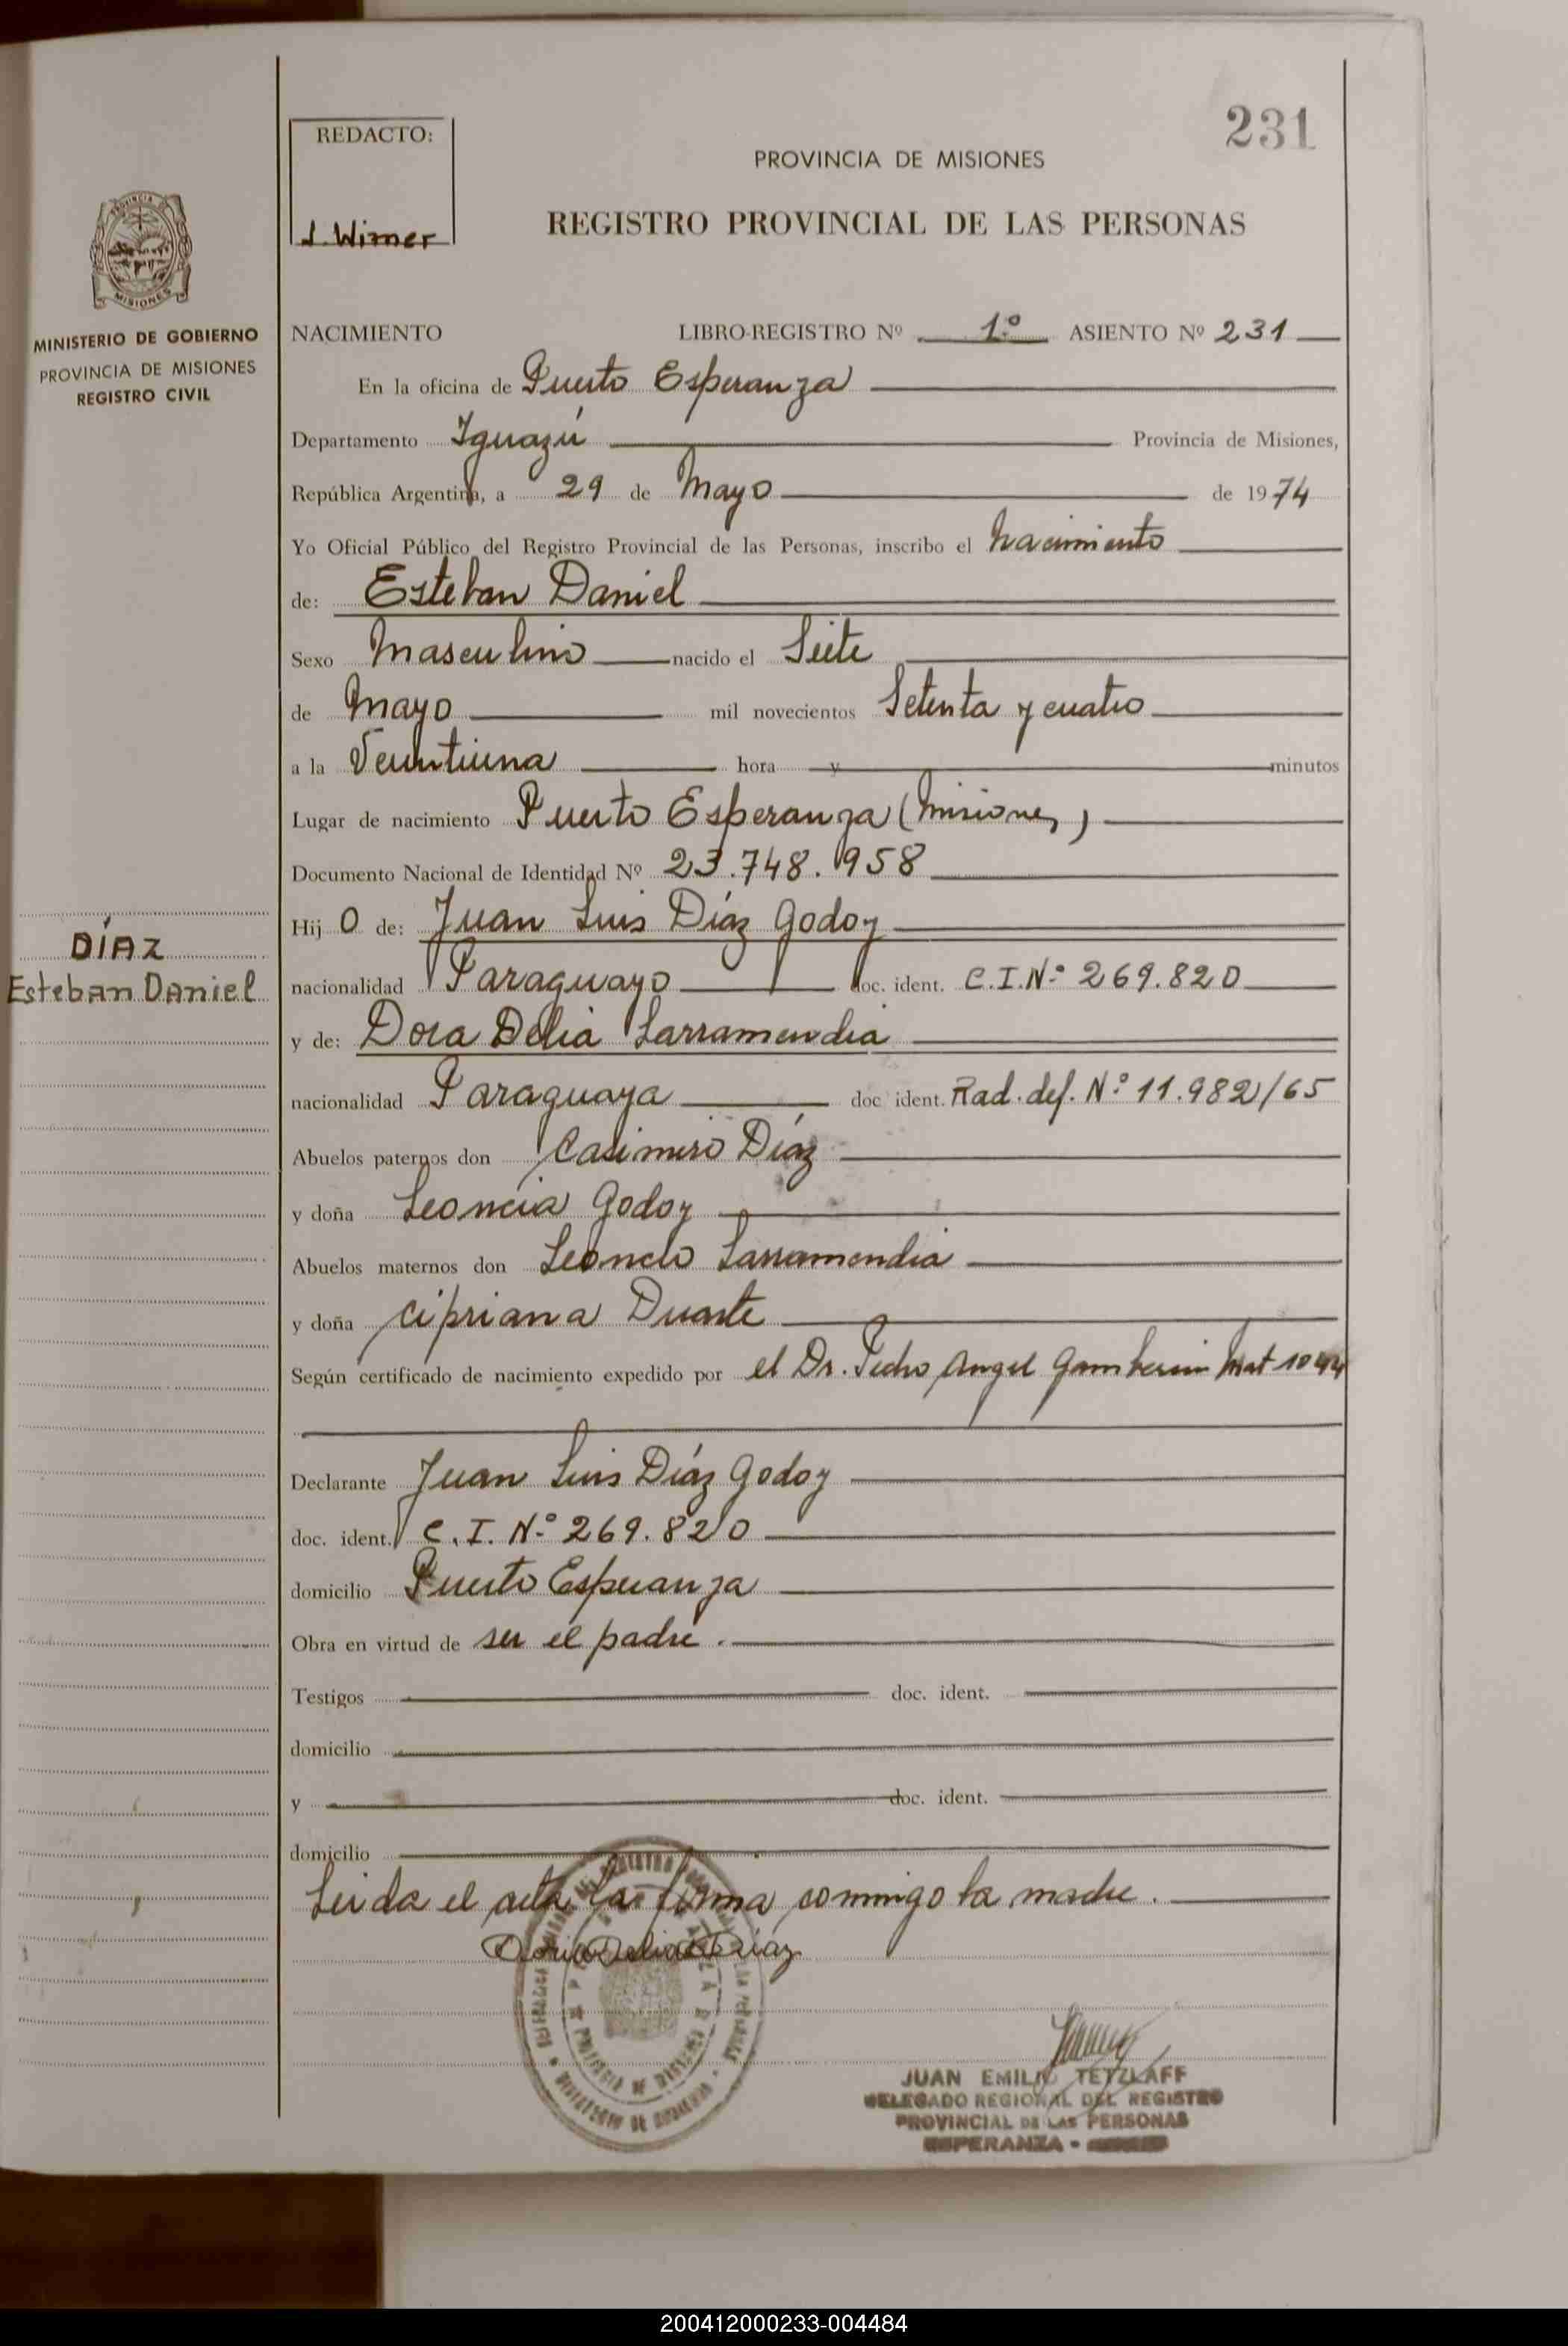 231
REDACTO:
J. Wimer
PROVINCIA DE MISIONES
REGISTRO PROVINCIAL DE LAS PERSONAS
MINISTERIO DE GOBIERNO
PROVINCIA DE MISIONES
REGISTRO CIVIL
NACIMIENTO LIBRO-REGISTRO Nº 1º ASIENTO Nº 231
En la oficina de Puerto Esperanza
Departamento Iguazú Provincia de Misiones,
República Argentina, a 29 de Mayo de 1974
Yo Oficial Público del Registro Provincial de las Personas, inscribo el nacimiento
de: Esteban Daniel
Sexo Masculino nacido el Siete
de Mayo mil novecientos Setenta y cuatro
a la Veintiuna hora y minutos
Lugar de nacimiento Puerto Esperanza (Misiones)
Documento Nacional de Identidad Nº 23.748.958
Hij o de: Juan Luis Díaz Godoy
DÍAZ
Esteban Daniel
nacionalidad Paraguayo doc. ident. C.I.Nº 269.820
y de: Dora Delia Larramendia
nacionalidad Paraguaya doc ident. Rad. def. Nº 11.982/65
Abuelos paternos don Casimiro Díaz
y doña Leoncia Godoy
Abuelos maternos don Leoncio Larramendia
y doña Cipriana Duarte
Según certificado de nacimiento expedido por el Dr. Pedro Angel Gamberin Mat 1044
Declarante Juan Luis Díaz Godoy
doc. ident. C.I. Nº 269.820
domicilio Puerto Esperanza
Obra en virtud de ser el padre.
Testigos doc. ident.
domicilio
y doc. ident.
domicilio
Leida el acta la firma conmigo la madre.
JUAN EMILIO TETZLAFF
DELEGADO REGIONAL DEL REGISTRO
PROVINCIAL DE LAS PERSONAS
ESPERANZA -
200412000233-004484